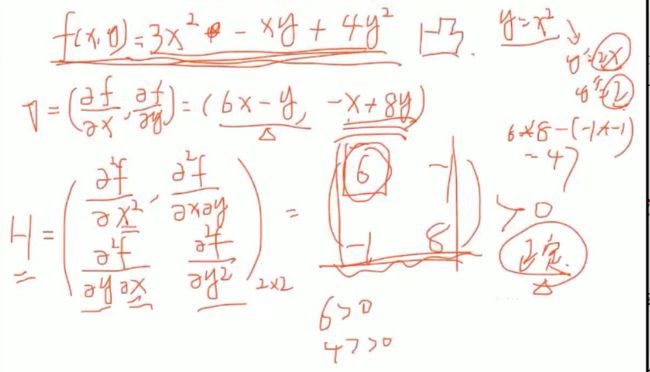 f(x,y)=3x²-xy+4y² 凸
y=x²
y'=2x
y''=2
∇=(∂f/∂x, ∂f/∂y)=(6x-y, -x+8y)
6×8-(-1×-1)
=47
H=(∂²f/∂x², ∂²f/∂x∂y
∂²f/∂y∂x ∂²f/∂y²)2×2 = (6 -1
-1 8) >0
正定
6>0
47>0